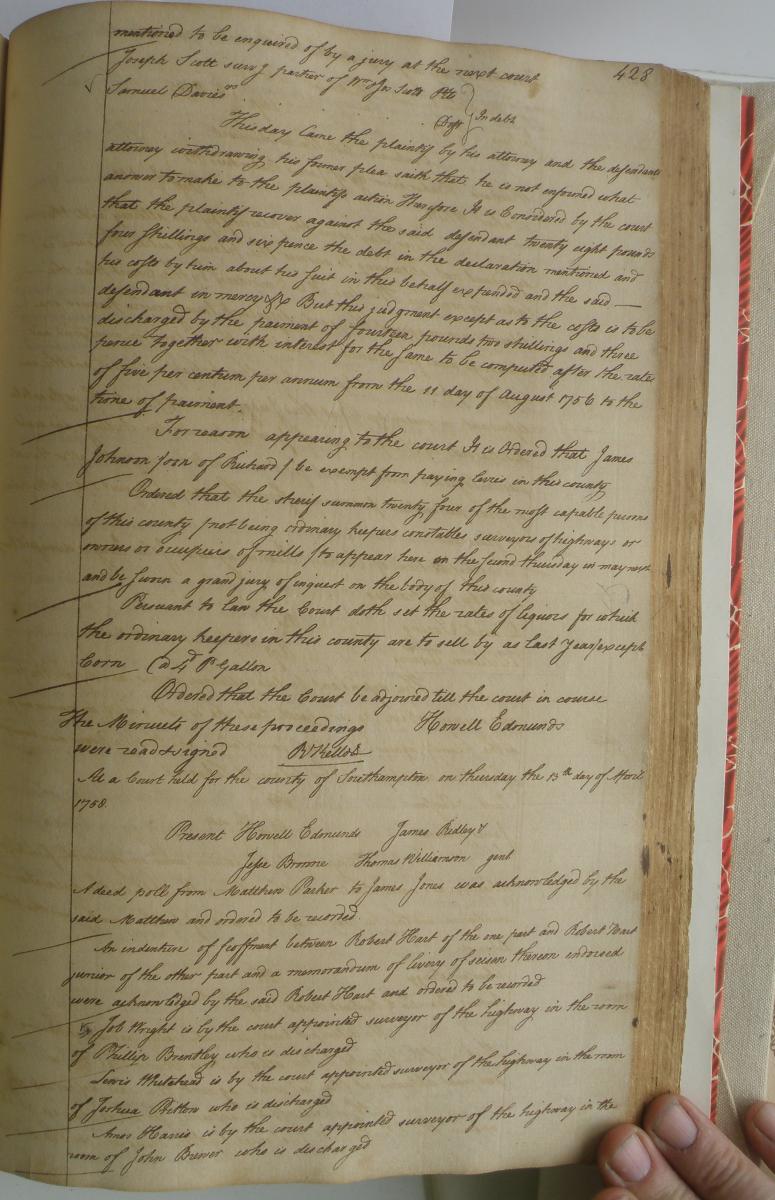 mentioned to be enquired of by a jury at the next court
428
Joseph Scott surv.g partner of Wm & Jos Scott Plt
Samuel Davies
Deft } In debt
This day Came the plaintif by his attorney and the defendants
attorney withdrawing his former plea saith that he is not enformed what
answer to make to the plaintifs action Therefore It is Considered by the court
that the plaintif recover against the said defendant twenty eight pounds
four Shillings and six pence the debt in the declaration mentioned and
his costs by him about his suit in this behalf expended and the said —
defendant in mercy &c But this judgment except as to the costs is to be
discharged by the paiment of fourteen pounds two shillings and three
pence together with interest for the same to be computed after the rate
of five per centum per annum from the 11 day of August 1756 to the
time of paiment.
For reason appearing to the court It is Ordered that James
Johnson /son of Richard/ be exempt from paying levies in this county
Ordered that the sherif summon twenty four of the most capable persons
of this county /not being ordinary keepers constables surveyors of highways or
owners or occupiers of mills /to appear here on the second thursday in may next
and be sworn a grand jury of inquest on the body of this county
Persuant to law the Court doth set the rates of liquors for which
the ordinary keepers in this county are to sell by as last Year/except
Corn @ 4d P Gallon
Ordered that the Court be adjorned till the court in course
The Minuets of these proceedings Howell Edmunds
were read & signed R Kello
At a Court held for the county of Southampton on thursday the 13th day of April
1758.
Present Howell Edmunds James Ridley
Jesse Browne Thomas Williamson gent
A deed poll from Matthew Parker to James Jones was acknowledged by the
said Matthew and ordered to be recorded.
An indenture of feoffment between Robert Hart of the one part and Robert Hart
junior of the other part and a memorandum of livery of seisen thereon endorsed
were acknowledged by the said Robert Hart and ordered to be recorded
Job Wright is by the court appointed surveyor of the highway in the room
of Phillip Brantley who is discharged
Lewis Whitehead is by the court appointed surveyor of the highway in the room
of Joshua who is discharged
Amos Harris is by the court appointed surveyor of the highway in the
room of John Brewer who is discharged